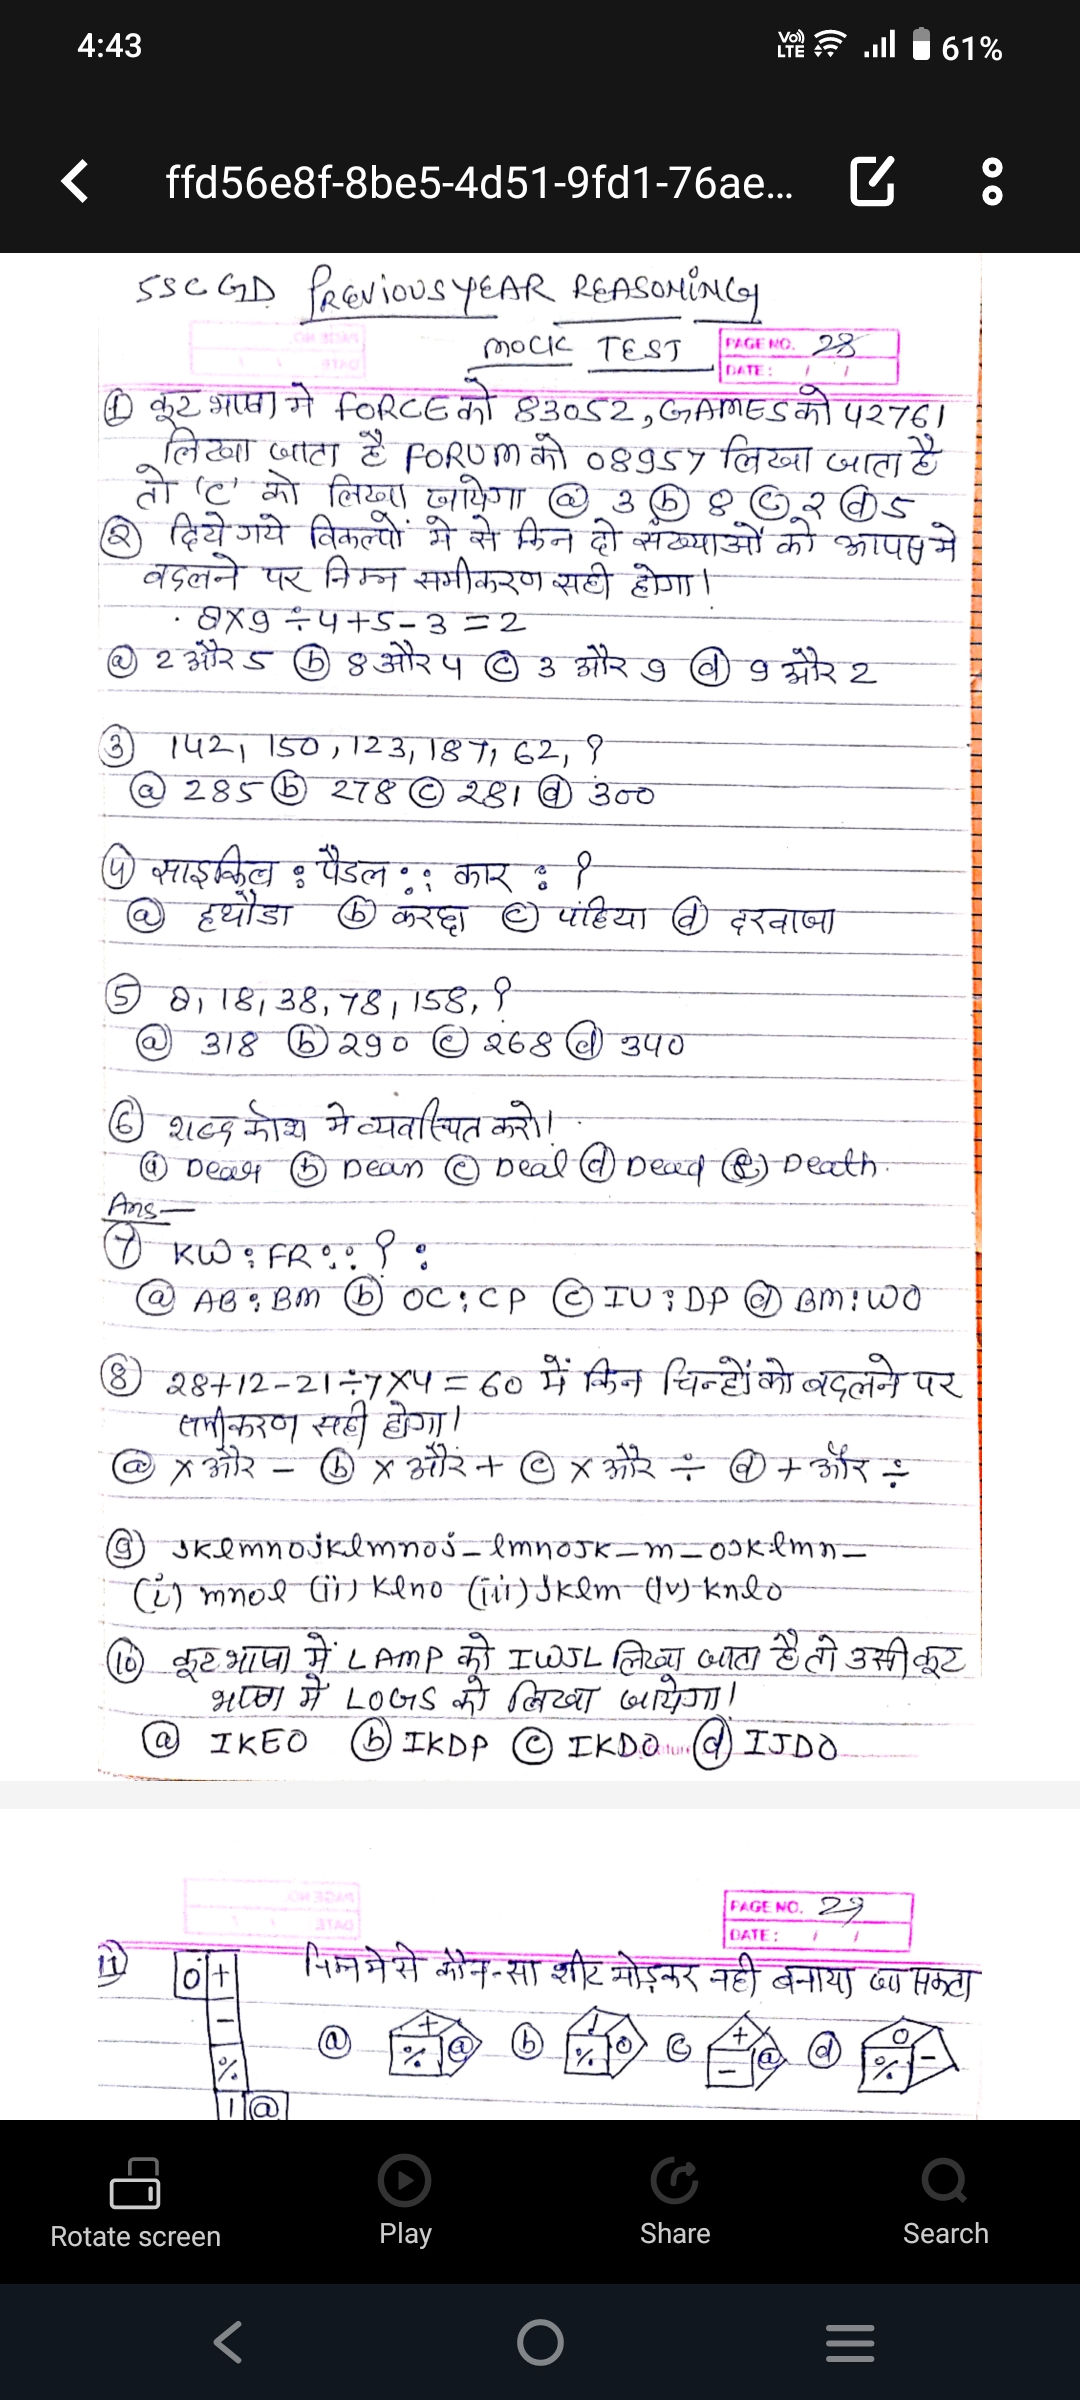 4:43
VoLTE 61%
ffd56e8f-8be5-4d51-9fd1-76ae...
SSC GD PREVIOUS YEAR REASONING
MOCK TEST
PAGE NO. 28
DATE: / /
① कूट भाषा मे FORCE को 83052, GAMES को 42761
लिखा जाता है FORUM को 08957 लिखा जाता है
तो 'C' को लिखा जायेगा ⓐ 3 ⓑ 8 ⓒ 2 ⓓ 5
② दिये गये विकल्पों मे से किन दो संख्याओं को आपस मे
बदलने पर निम्न समीकरण सही होगा।
8×9÷4+5-3=2
ⓐ 2 और 5 ⓑ 8 और 4 ⓒ 3 और 9 ⓓ 9 और 2
③ 142, 150, 123, 187, 62, ?
ⓐ 285 ⓑ 278 ⓒ 281 ⓓ 300
④ साइकिल : पैडल :: कार : ?
ⓐ हथौडा ⓑ ⓒ पहिया ⓓ दरवाजा
⑤ 8, 18, 38, 78, 158, ?
ⓐ 318 ⓑ 290 ⓒ 268 ⓓ 340
⑥ शब्द कोश मे व्यवस्थित करो।
ⓐ ⓑ Dean ⓒ Deal ⓓ Dead ⓔ Death
Ans—
⑦ KW : FR :: ? :
ⓐ AB : BM ⓑ OC : CP ⓒ IU : DP ⓓ BM : WO
⑧ 28+12-21÷7×4=60 में किन चिन्हों को बदलने पर
समीकरण सही होगा।
ⓐ × और - ⓑ × और + ⓒ × और ÷ ⓓ + और ÷
⑨ jklmnojklmnoj_lmnojk_m_ojklmn_
(i) mnol (ii) klno (iii) jklm (iv) knlo
⑩ कूट भाषा में LAMP को IWJL लिखा जाता है तो उसी कूट
भाषा में LOGS को लिखा जायेगा।
ⓐ IKEO ⓑ IKDP ⓒ IKDO ⓓ IJDO
PAGE NO. 29
DATE: / /
⑪ निम्न मे से कौन-सा शीट मोड़कर नही बनाया जा सकता
0 +
-
%
| @
ⓐ + % @ ⓑ | % 0 ⓒ + - @ ⓓ 0 % -
Rotate screen
Play
Share
Search